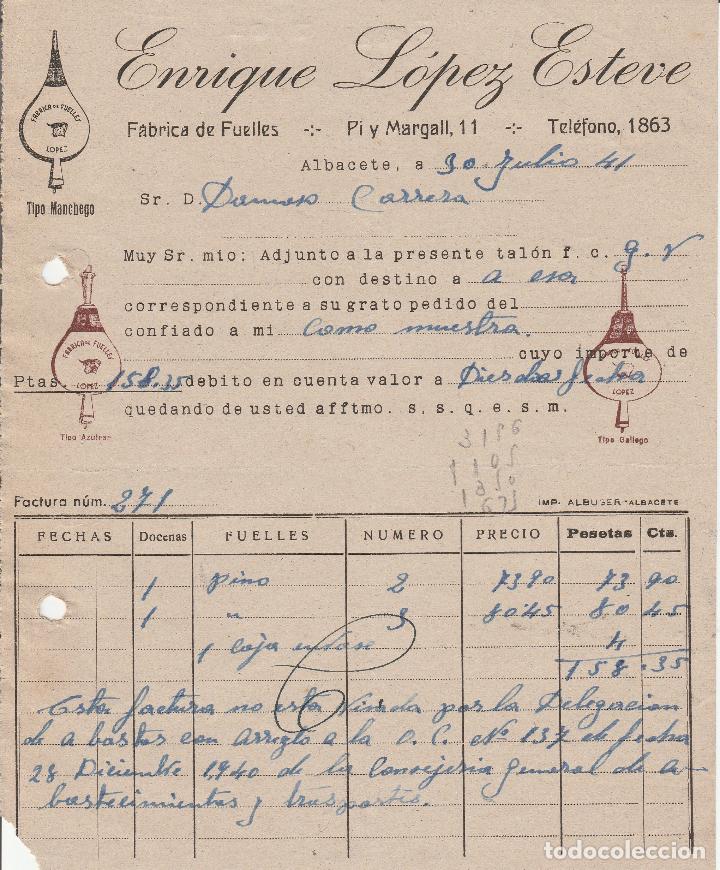 Enrique López Esteve
FABRICA DE FUELLES
LOPEZ
Tipo Manchego
Fábrica de Fuelles -:- Pi y Margall, 11 -:- Teléfono, 1863
Albacete, a 30 Julio 41
Sr. D. Damaso Carrera
Muy Sr. mio: Adjunto a la presente talón f. c. g. v
con destino a a esa
correspondiente a su grato pedido del
confiado a mi como muestra.
cuyo importe de
Ptas. 158.35 debito en cuenta valor a Dies dias fecha
quedando de usted afftmo. s. s. q. e. s. m.
FABRICA DE FUELLES
LOPEZ
Tipo Azufrar
LOPEZ
Tipo Gallego
3156
1105
1850
Factura núm. 271
IMP. ALBUGER-ALBACETE
FECHAS Docenas FUELLES NUMERO PRECIO Pesetas Cts.
1 pino 2 73 90 73 90
1 " 3 80 45 80 45
1 caja envase 4
158.35
Esta factura no esta visada por la Delegacion
de abastos con arreglo a la O. C. Nº 137 de fecha
28 Diciembre 1940 de la Consejeria general de a-
bastecimientos y trasportes.
todocoleccion